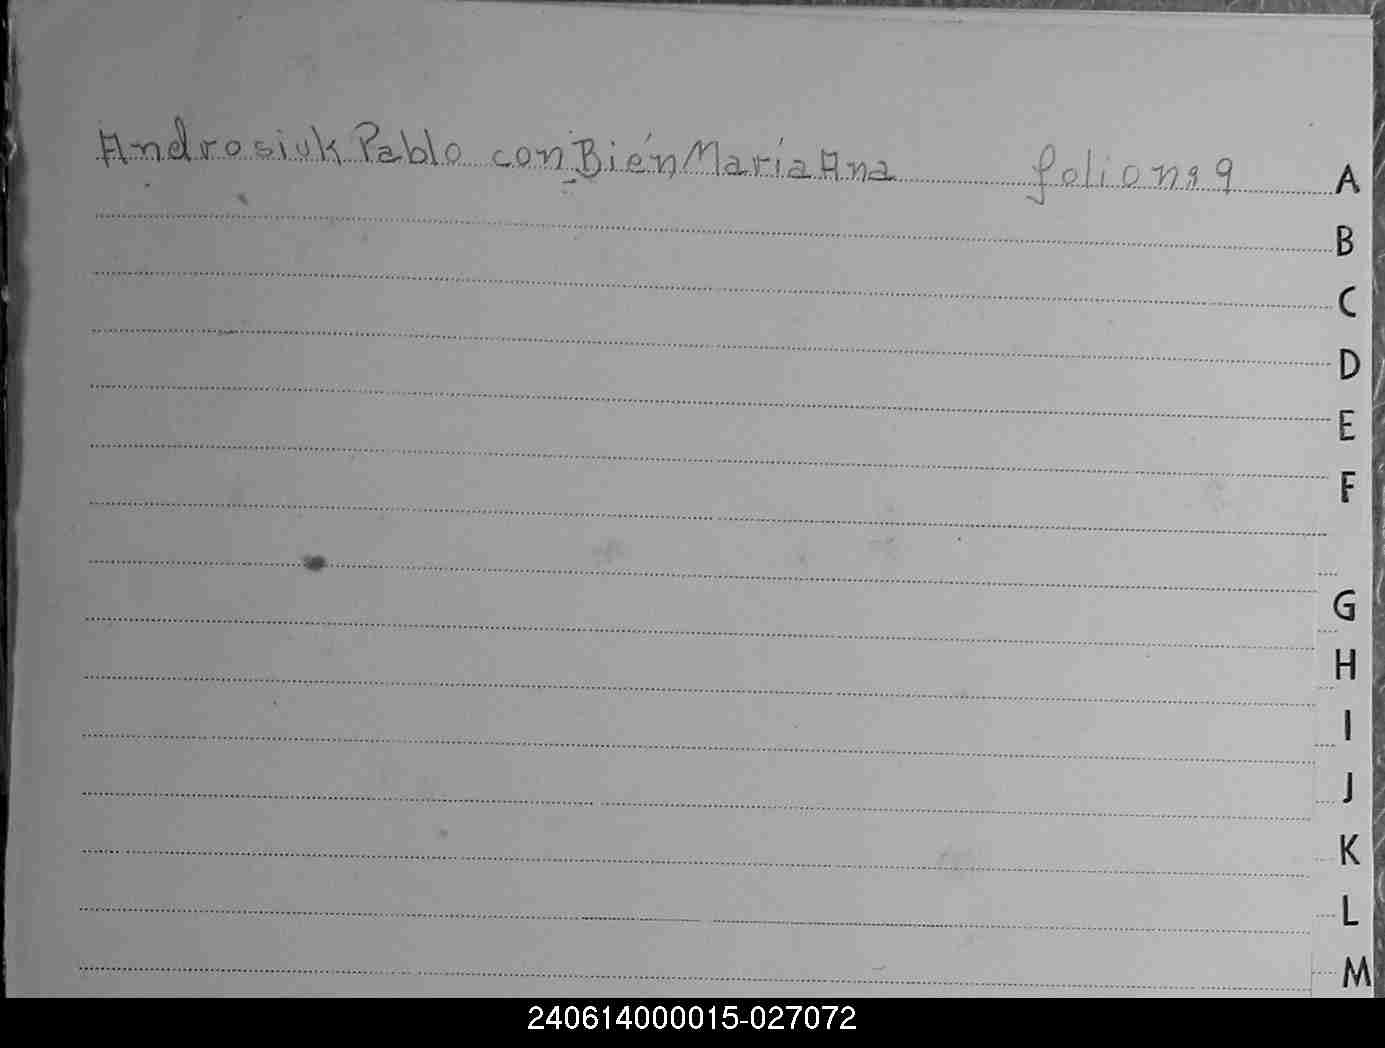 Androsiuk Pablo con Bién María Ana folio nº 9
A
B
C
D
E
F
G
H
I
J
K
L
M
240614000015-027072